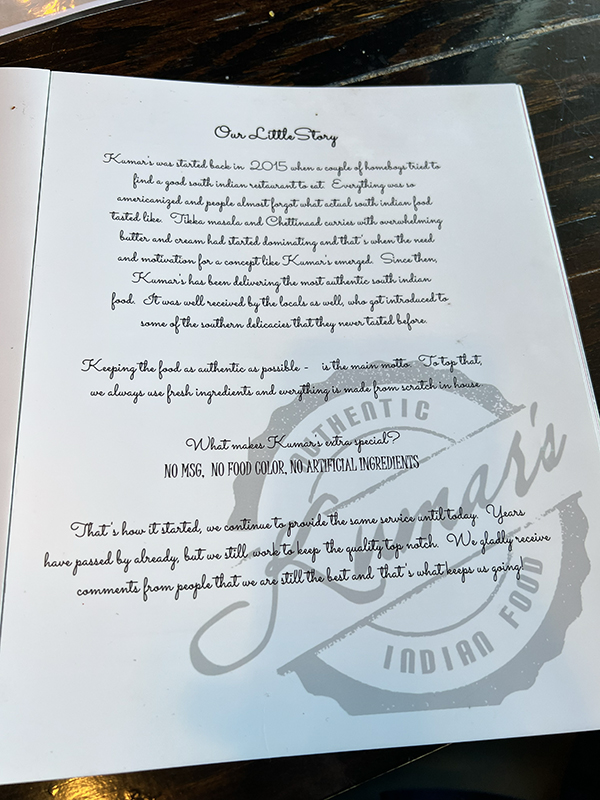 Our Little Story
Kumar's was started back in 2015 when a couple of homeboys tried to
find a good south indian restaurant to eat. Everything was so
americanized and people almost forgot what actual south indian food
tasted like. Tikka masala and Chettinaad curries with overwhelming
butter and cream had started dominating and that's when the need
and motivation for a concept like Kumar's emerged. Since then,
Kumar's has been delivering the most authentic south indian
food. It was well received by the locals as well, who got introduced to
some of the southern delicacies that they never tasted before.
Keeping the food as authentic as possible - is the main motto. To top that,
we always use fresh ingredients and everything is made from scratch in house
What makes Kumar's extra special?
NO MSG, NO FOOD COLOR, NO ARTIFICIAL INGREDIENTS
That's how it started, we continue to provide the same service until today. Years
have passed by already, but we still work to keep the quality top notch. We gladly receive
comments from people that we are still the best and that's what keeps us going!
AUTHENTIC
Kumar's
INDIAN FOOD